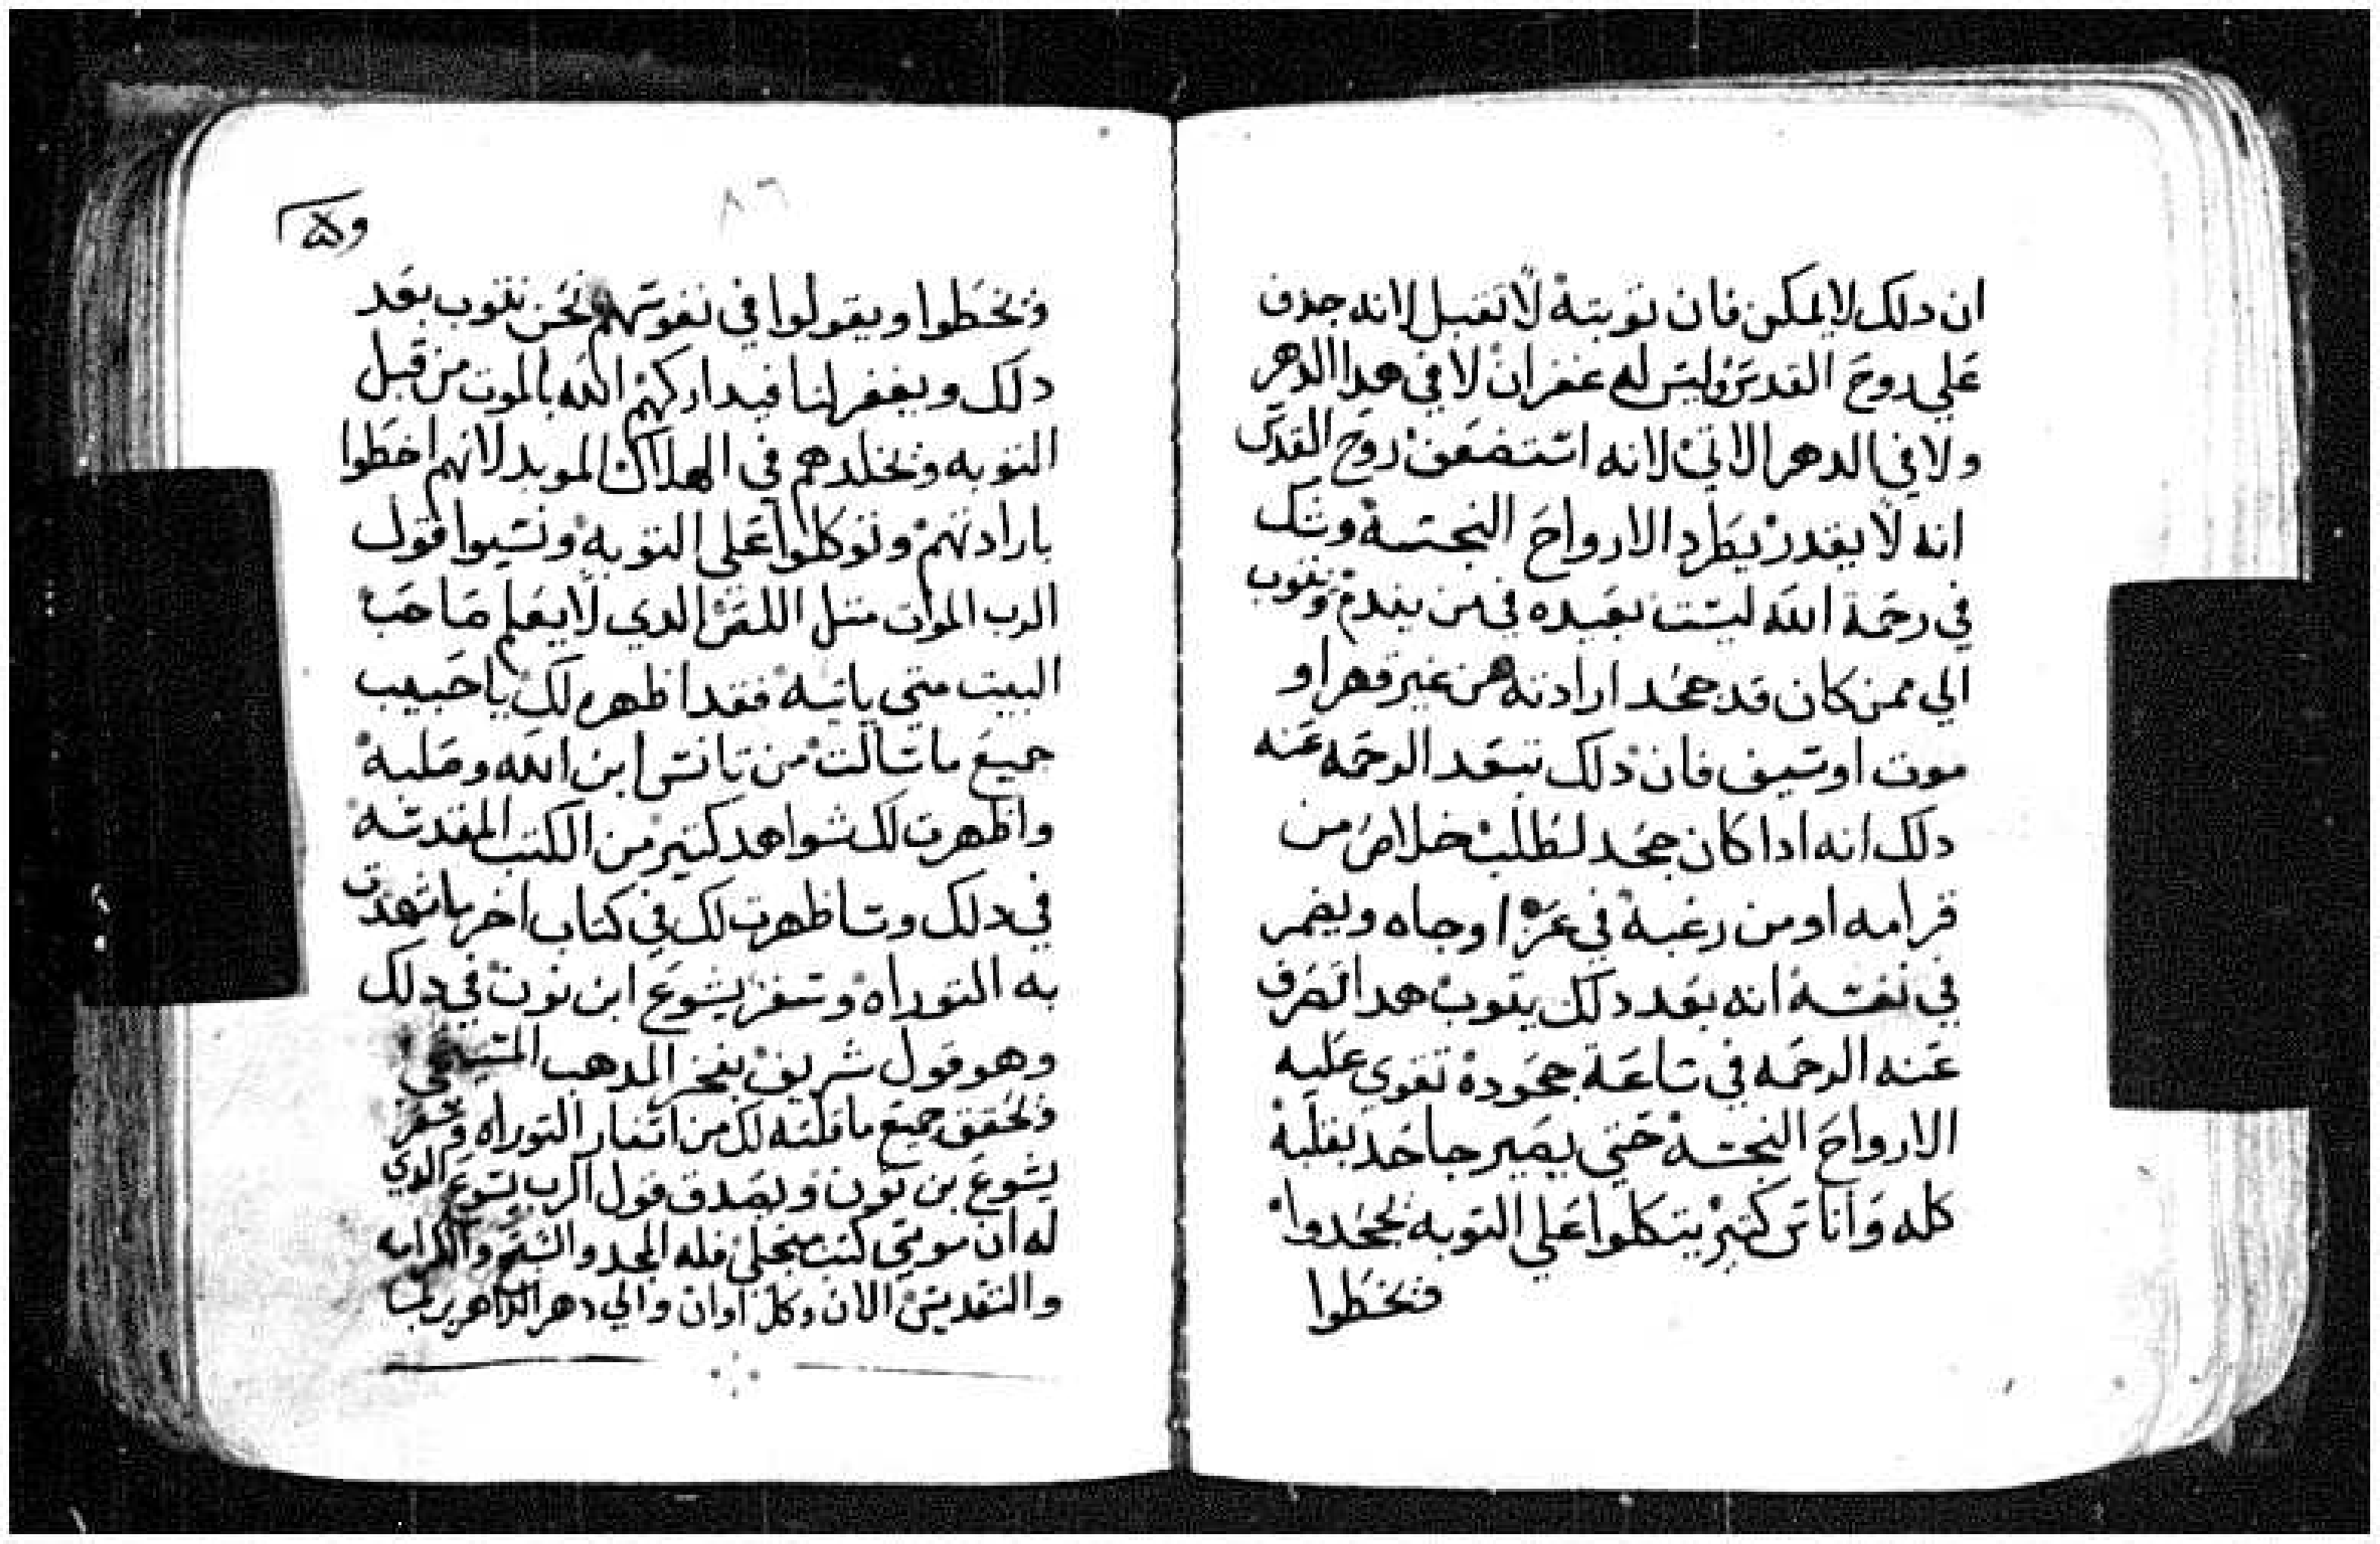 ان دلك لا يمكن فان توبته لا تقبل لانه جدف
علي روح القدس وليس له غفران لا في هدا الدهر
ولا في الدهر الاتي لانه استضعف روح القدس
انه لا يقدر يطرد الارواح النجسه وشك
في رحمة الله ليست بعيده في من يندم ويتوب
الي ممن كان قد جحد ارادته من غير قهر او
موت او سيف فان دلك تبعد الرحمه عنه
دلك انه ادا كان جحد لطلب خلاص من
قرامه او من رغبة في عز او جاه ويضمر
في نفسه انه بعد دلك يتوب هدا تصرف
عنه الرحمه في ساعة جحوده تقوي عليه
الارواح النجسه حتي يصير جاحد بقلبه
كله واناس كتير يتكلوا علي التوبه يجحدوا
فيخطوا
٨٦
فيخطوا ويقولوا في نفوسهم نحن نتوب بعد
دلك ويغفر لنا فيداركهم الله بالموت من قبل
التوبه ويخلدهم في الهلاك الموبد لانهم اخطوا
بارادتهم وتوكلوا علي التوبه ونسيوا قول
الرب الموت متل اللص الدي لا يعلم صاحب
البيت متي ياتيه فقد اظهر لك يا حبيب
جميع ما سالت من تانس ابن الله وصلبه
واظهرت لك شواهد كتير من الكتب المقدسه
في دلك وساظهرت لك في كتاب اخر ما شهدت
به التوراه وسفر يشوع ابن نون في دلك
وهو قول شريف يفخر المدهب المسيحي
ويحقق جميع ما قلته لك من اسفار التوراه وسفر
يشوع بن نون ويصدق قول الرب يسوع الدي
له ان موسي كتب من اجلي فله المجد والتسبيح والكرامه
والتقديس الان وكل اوان والي دهر الداهرين امين